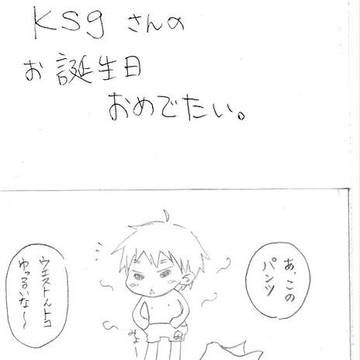 KSgさんの
お誕生日
おめでたい。
あ、この
パンツ
ウエストんトコ
ゆっるいな〜
みょーん